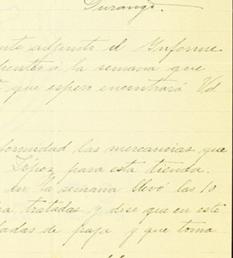 Durango.
adjunto el Informe
a la semana que
que espero encontrará Vd
las mercancías que
López para esta tienda.
en la semana llevó las 10
tratadas y dise que en este
de paja y que toma